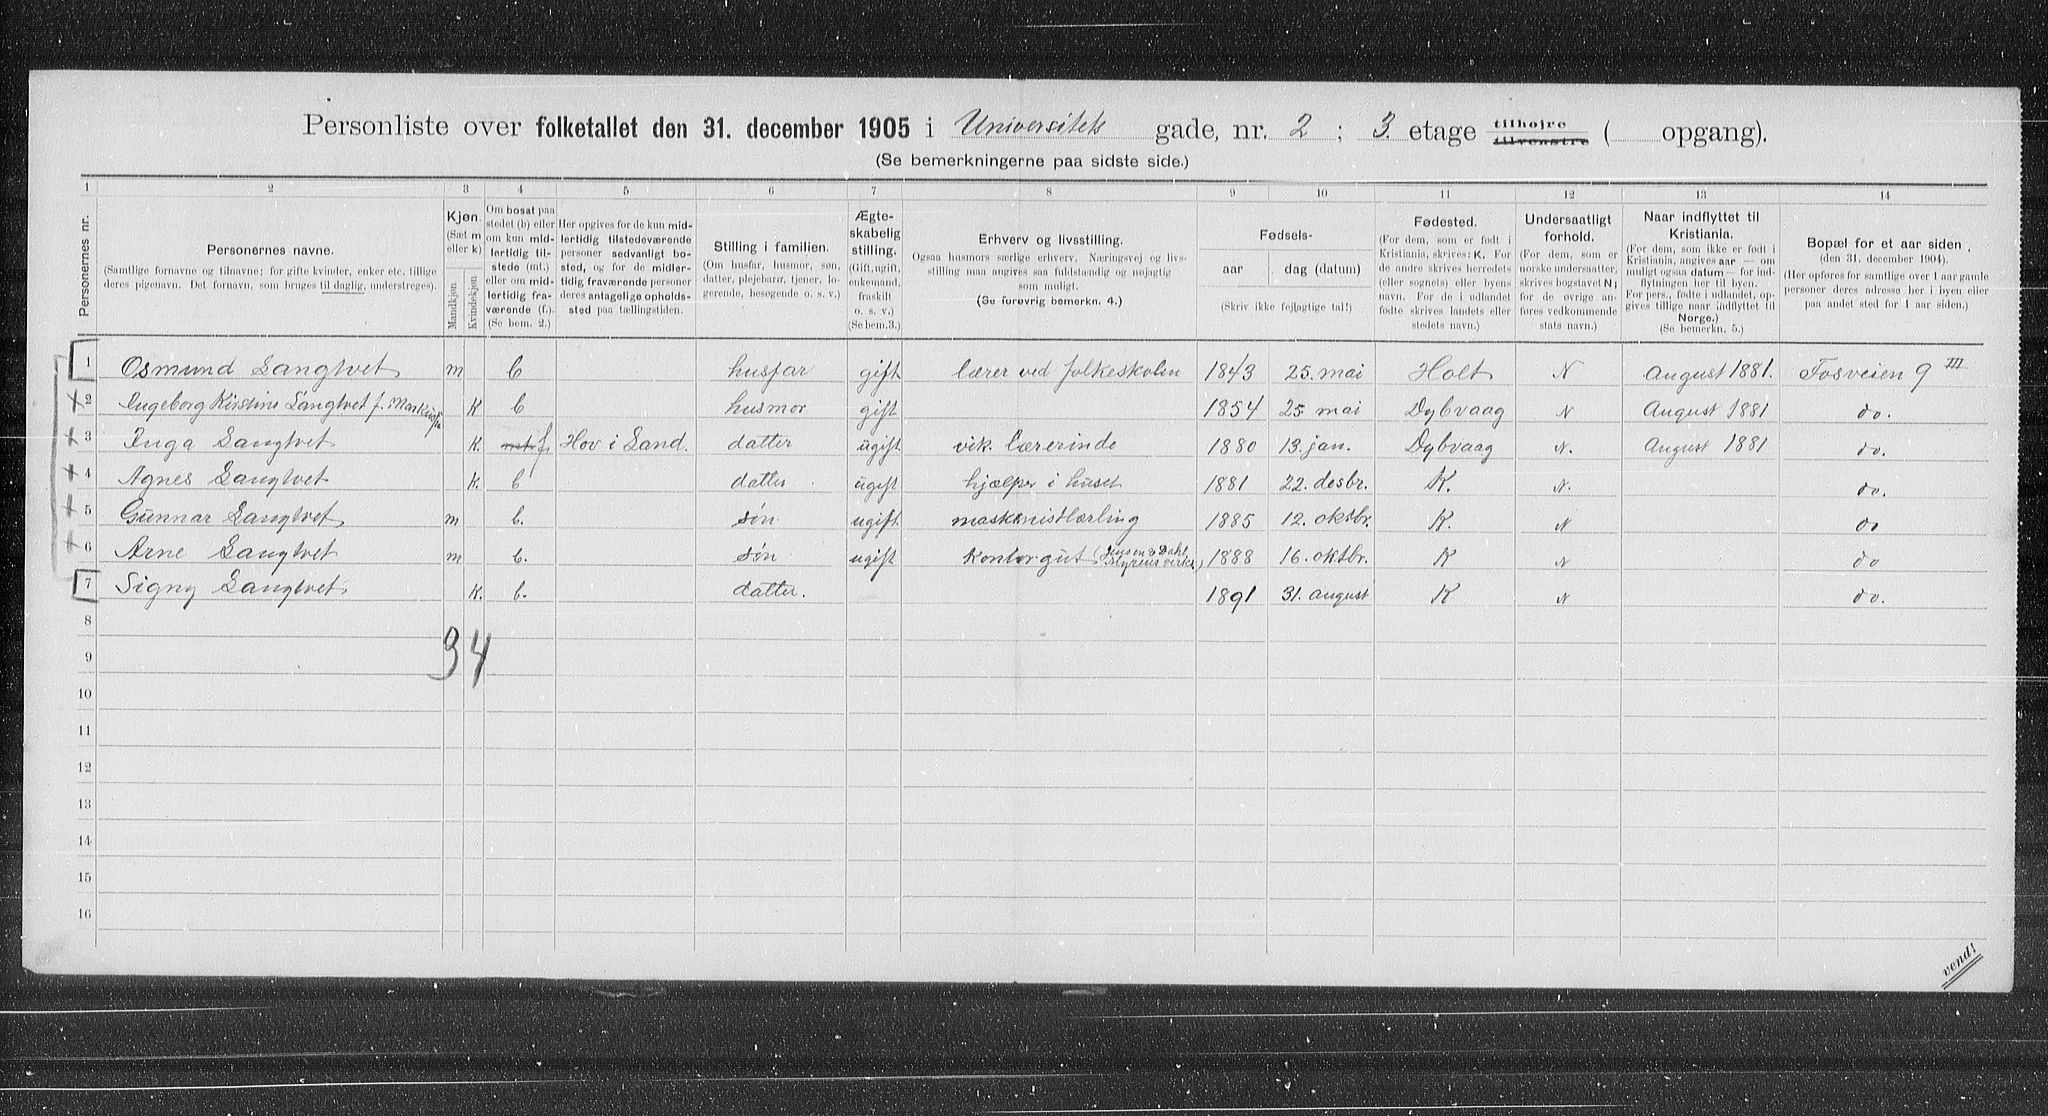 Personliste over folketallet den 31. december 1905 i Universitets gade, nr. 2 ; 3. etage tilhøjre tilvenstre ( opgang).
(Se bemerkningerne paa sidste side.)
1 2 3 4 5 6 7 8 9 10 11 12 13 14
Personernes nr.
Personernes navne.
(Samtlige fornavne og tilnavne; for gifte kvinder, enker etc. tillige
deres pigenavn. Det fornavn, som bruges til daglig, understreges).
Kjøn.
(Sæt m
eller k)
Mandkjøn
Kvindekjøn
Om bosat paa
stedet (b) eller
om kun mid-
lertidig til-
stede (mt.)
eller om mid-
lertidig fra-
værende (f.)
(Se bem. 2.)
Her opgives for de kun mid-
lertidig tilstedeværende
personer sedvanligt bo-
sted, og for de midler-
tidig fraværende personer
deres antagelige opholds-
sted paa tællingstiden.
Stilling i familien.
(Om husfar, husmor, søn,
datter, plejebarn, tjener, lo-
gerende, besøgende o. s. v.)
Ægte-
skabelig
stilling.
(Gift, ugift,
enkemand,
fraskilt
o. s. v.)
(Se bem. 3.)
Erhverv og livsstilling.
Ogsaa husmors særlige erhverv. Næringsvej og livs-
stilling maa angives saa fuldstændig og nøjagtig
som muligt.
(Se forøvrig bemerkn. 4.)
Fødsels-
aar dag (datum)
(Skriv ikke fejlagtige tal!)
Fødested.
(For dem, som er født i
Kristiania, skrives: K. For
de andre skrives herredets
(eller sognets) eller byens
navn. For de i udlandet
fødte skrives landets eller
stedets navn.)
Undersaatligt
forhold.
(For dem, som er
norske undersaatter,
skrives bogstavet N;
for de øvrige an-
føres vedkommende
stats navn.)
Naar indflyttet til
Kristiania.
(For dem, som ikke er født i
Kristiania, angives aar — om
muligt ogsaa datum — for ind-
flytningen her til byen.
For pers., fødte i udlandet, op-
gives tillige naar indflyttet til
Norge.)
(Se bemerkn. 5.)
Bopæl for et aar siden.
(den 31. december 1904.)
(Her opføres for samtlige over 1 aar gamle
personer deres adresse her i byen eller
paa andet sted for 1 aar siden.)
1 Osmund Langtvet m b husfar gift lærer ved folkeskolen 1843 25. mai Holt N August 1881. Fosveien 9 III
2 Ingeborg Kirstine Langtvet f. K b husmor gift 1854 25 mai Dybvaag N August 1881 do.
3 Inga Langtvet K. f. Hov i Land. datter ugift vik. lærerinde 1880 13. jan. Dybvaag N. August 1881 do.
4 Agnes Langtvet K. b datter ugift hjælper i huset 1881 22. desbr. K. N. do.
5 Gunnar Langtvet m b. søn ugift maskinistlærling 1885 12. oktbr. K. N do
6 Arne Langtvet m b. søn ugift Kontorgut (Jensen & Dahl Myrens verks.) 1888 16. oktbr. K N do
7 Signy Langtvet K. b. datter. 1891 31. august K N do.
8
3 4
9
10
11
12
13
14
15
16
vend!